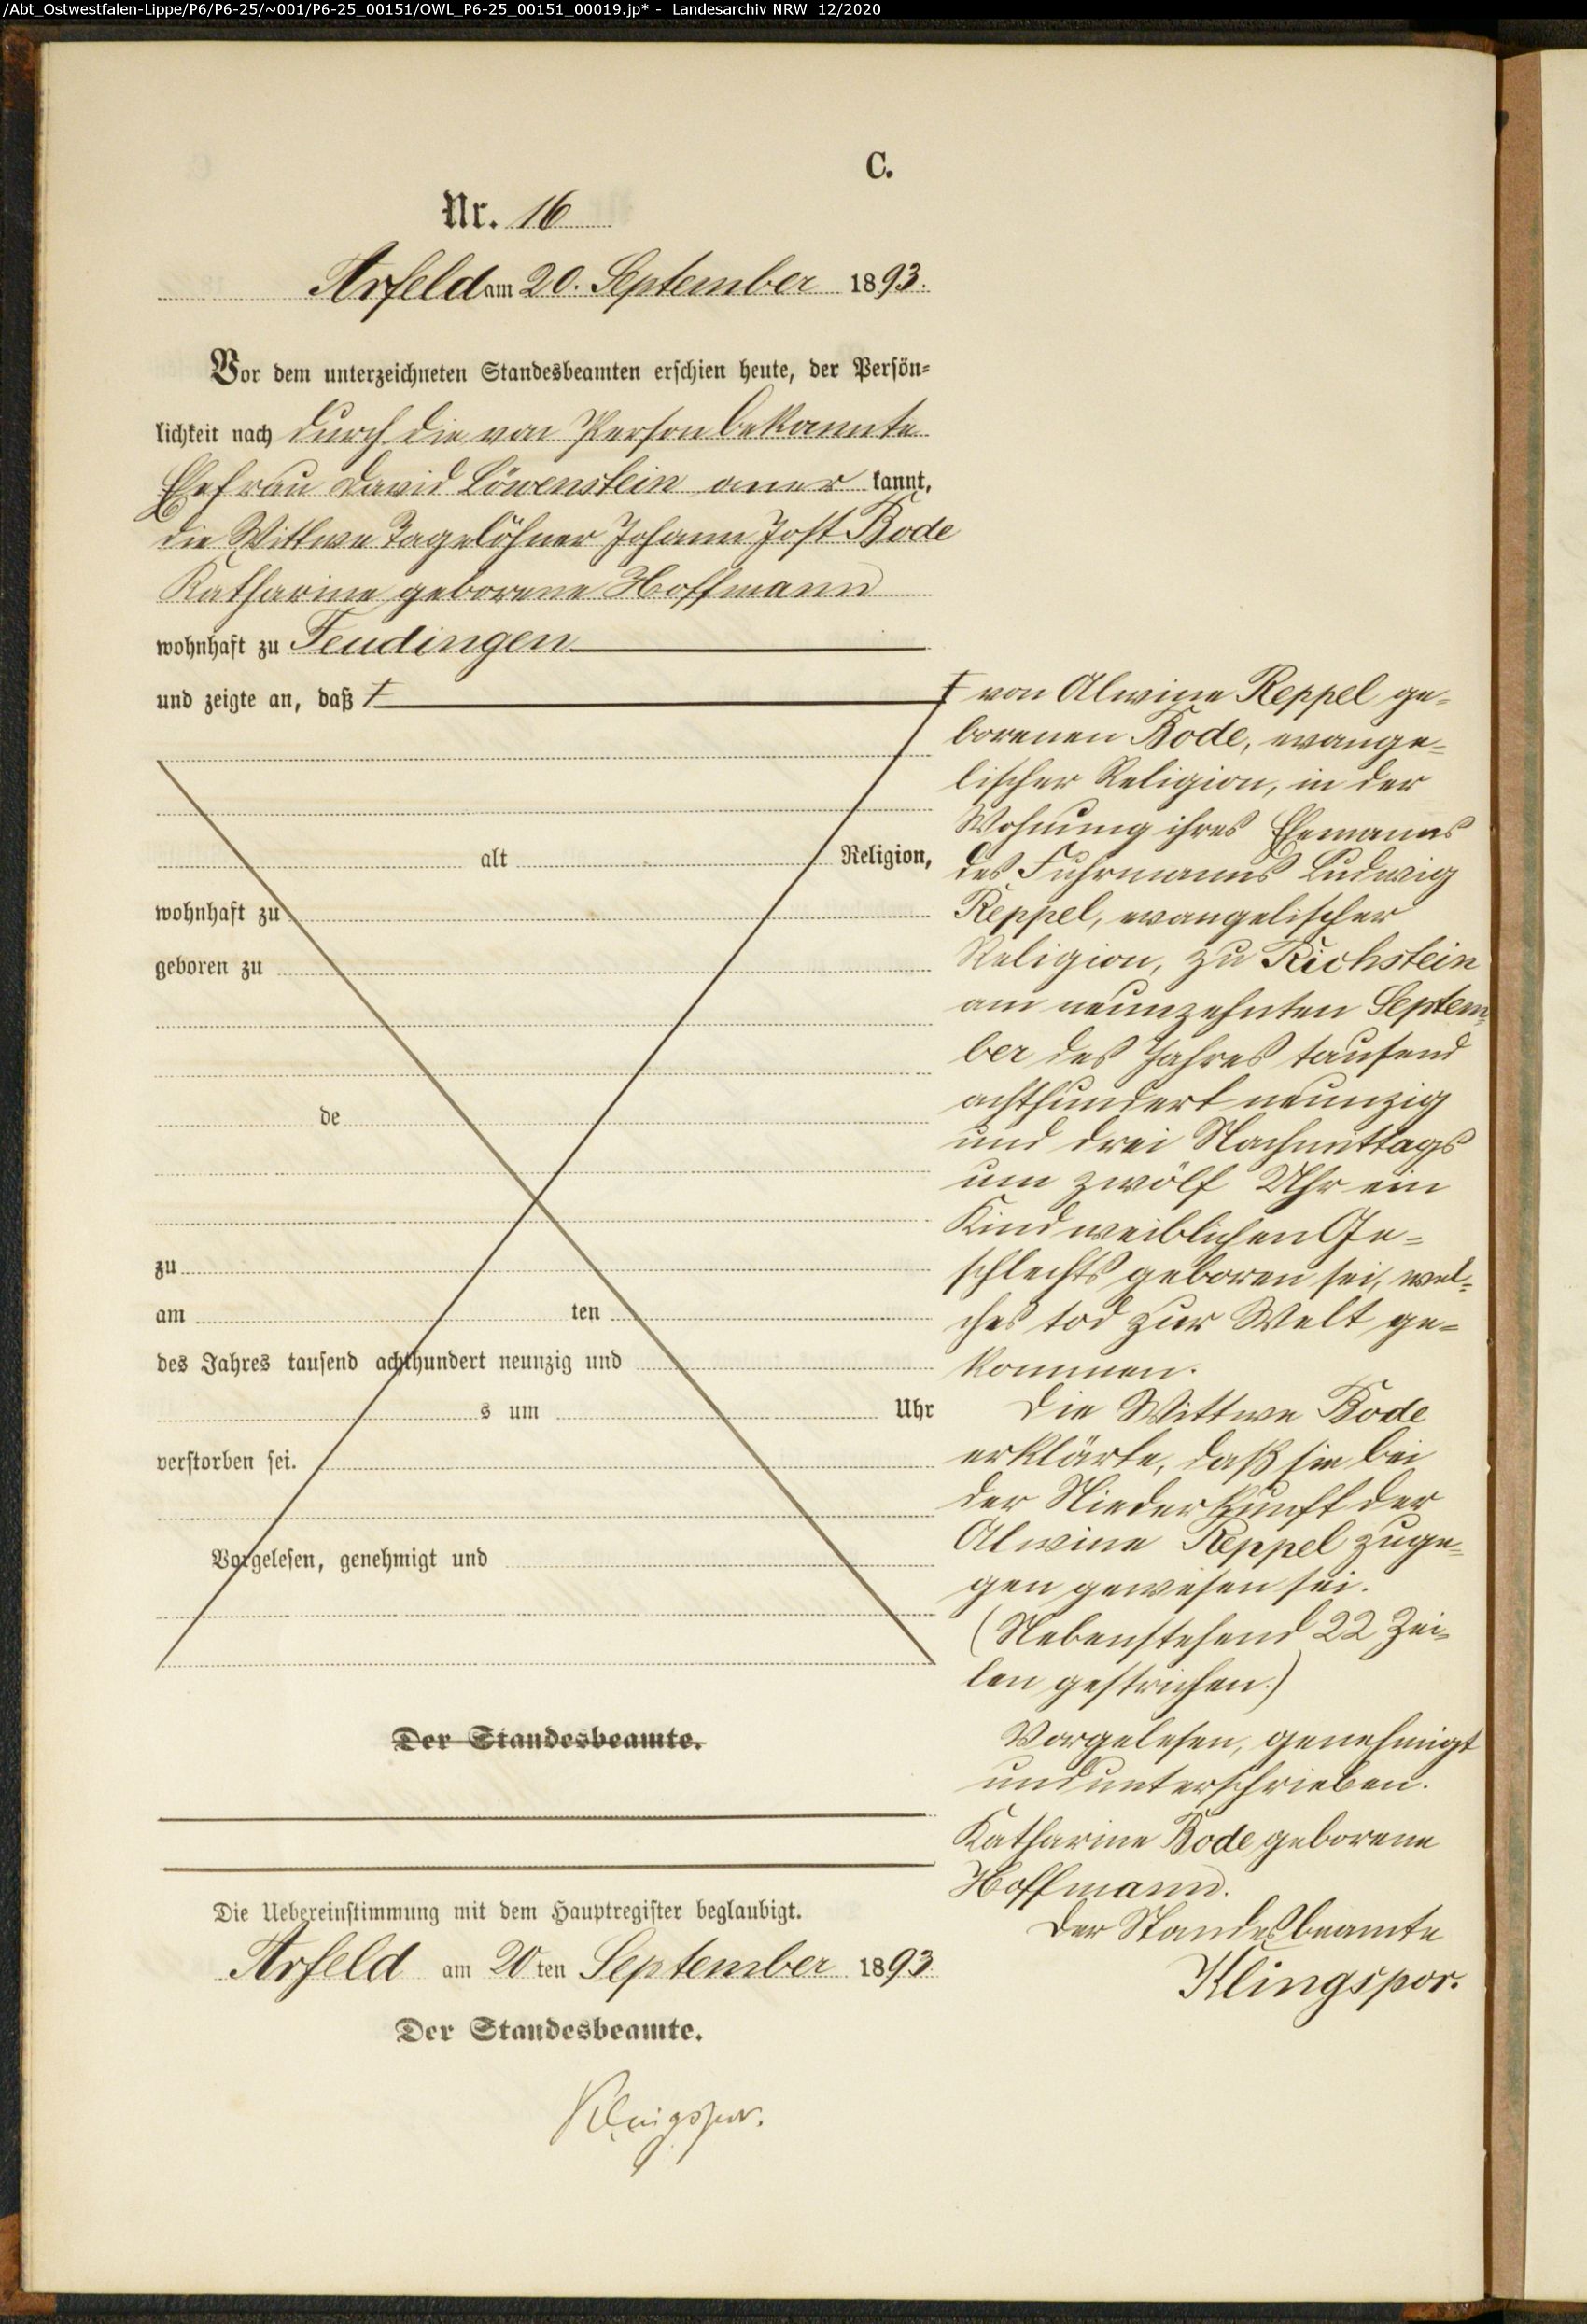 /Abt_Ostwestfalen-Lippe/P6/P6-25/~001/P6-25_00151/OWL_P6-25_00151_00019.jp* - Landesarchiv NRW 12/2020
C.
Nr. 16
Arfeld am 20. September 1893.
Vor dem unterzeichneten Standesbeamten erschien heute, der Persön-
lichkeit nach durch die von Person bekannte
Ehefrau David Löwenstein aner kannt,
die Wittwe Tagelöhner Johann Jost Bode
Katharine geborene Hoffmann
wohnhaft zu Feudingen
und zeigte an, daß ┼
alt Religion,
wohnhaft zu
geboren zu
de
zu
am ten
des Jahres tausend achthundert neunzig und
s um Uhr
verstorben sei.
Vorgelesen, genehmigt und
Der Standesbeamte.
Die Uebereinstimmung mit dem Hauptregister beglaubigt.
Arfeld am 20 ten September 1893
Der Standesbeamte.
Klingspor.
┼ von Alwine Reppel ge-
borenen Bode, evange-
lischer Religion, in der
Wohnung ihres Ehemanns
des Fuhrmanns Ludwig
Reppel, evangelischer
Religion, zu Richstein
am neunzehnten Septem-
ber des Jahres tausend
achthundert neunzig
und drei Nachmittags
um zwölf Uhr ein
Kind weiblichen Ge-
schlechts geboren sei, wel-
ches tod zur Welt ge-
kommen.
Die Wittwe Bode
erklärte, daß sie bei
der Niederkunft der
Alwine Reppel zuge-
gen gewesen sei.
(Nebenstehend 22 Zei-
len gestrichen.)
Vorgelesen, genehmigt
und unterschrieben.
Katharine Bode geborene
Hoffmann.
Der Standesbeamte
Klingspor.